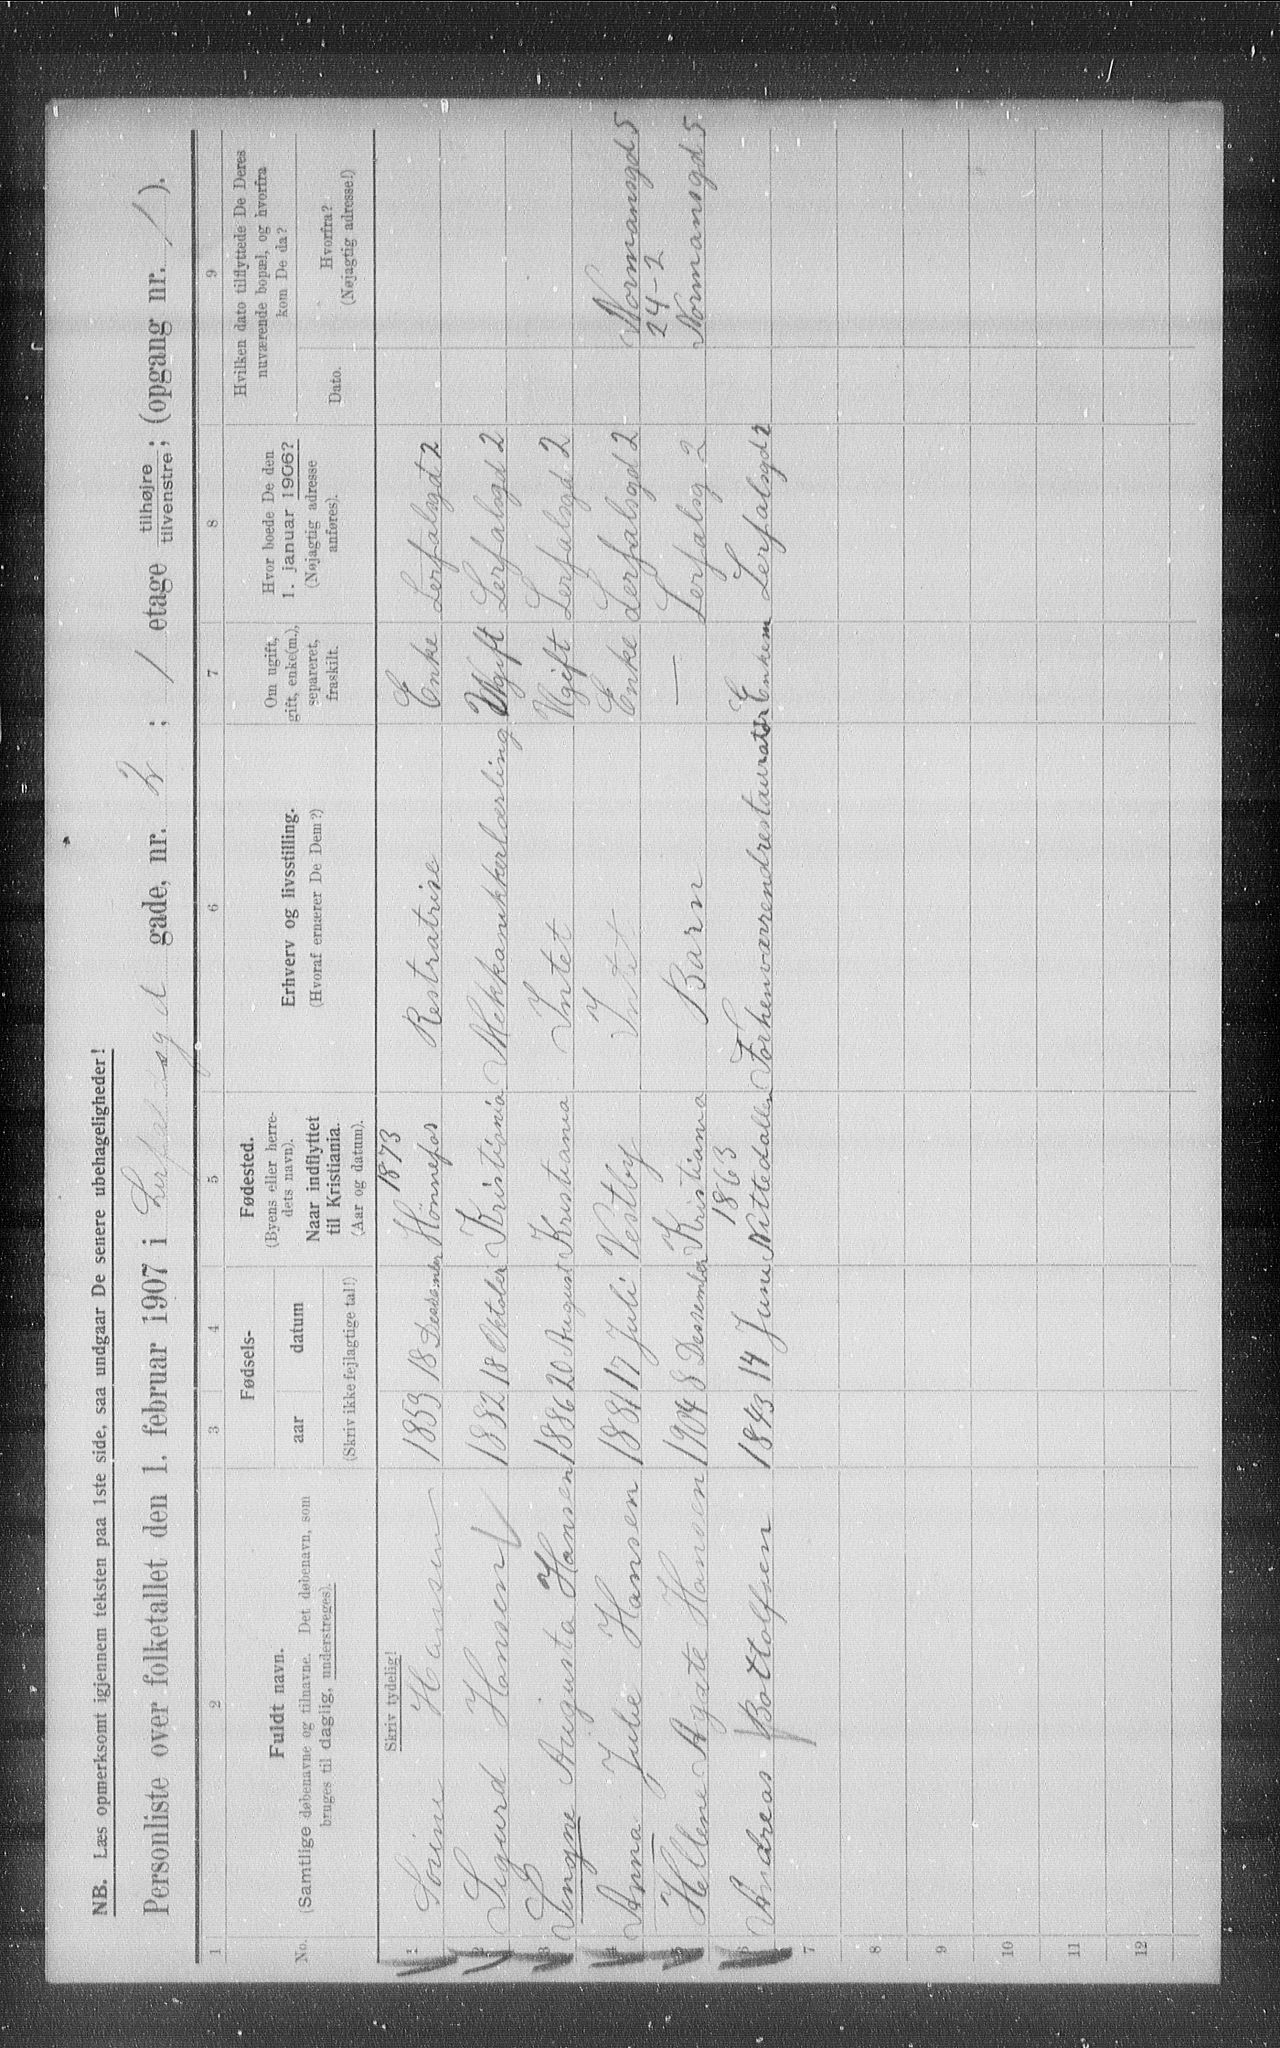 NB. Læs opmerksomt igjennem teksten paa 1ste side, saa undgaar De senere ubehageligheder!
Personliste over folketallet den 1. februar 1907 i Lerfalsgd gade, nr. 2 ; 1 etage tilhøjre tilvenstre; (opgang nr. 1 ).
1 2 3 4 5 6 7 8 9
No.
Fuldt navn.
(Samtlige døbenavne og tilnavne. Det døbenavn, som
bruges til daglig, understreges).
Fødsels-
aar datum
(Skriv ikke fejlagtige tal!)
Fødested.
(Byens eller herre-
dets navn).
Naar indflyttet
til Kristiania.
(Aar og datum).
Erhverv og livsstilling.
(Hvoraf ernærer De Dem?)
Om ugift,
gift, enke(m.),
separeret,
fraskilt.
Hvor boede De den
1. januar 1906?
(Nøjagtig adresse
anføres).
Hvilken dato tilflyttede De Deres
nuværende bopæl, og hvorfra
kom De da?
Dato.
Hvorfra?
(Nøjagtig adresse!)
Skriv tydelig!
1873
1 Hansen 1853 18 Hönnefos Restratrise Enke Lerfalsgd 2
2 Sigurd Hansen 1882 18 Oktober Kristiania Mekkanikkerlærling Ugift Lerfalsgd 2
3 Singne Augusta Hansen 1886 20 August Kristiania Intet Ugift Lerfalsgd 2
4 Anna Julie Hansen 1881 17 Juli Vestby Intet Enke Lerfalsgd 2 Normansgd 5
24-2
5 Hellene Agate Hansen 1904 8 Desember Kristiania Barn — Lerfalsg 2 Normansgd 5
1863
6 Andreas Bottolfsen 1843 14 Juni Nittedallen Forhenværrendrestauratør Enkem Lerfalsgd 2
7
8
9
10
11
12